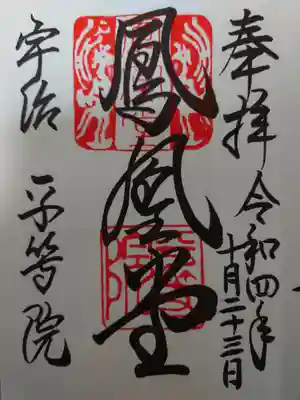 奉拝 令和四年
十月二十三日
鳳凰堂
宇治 平等院